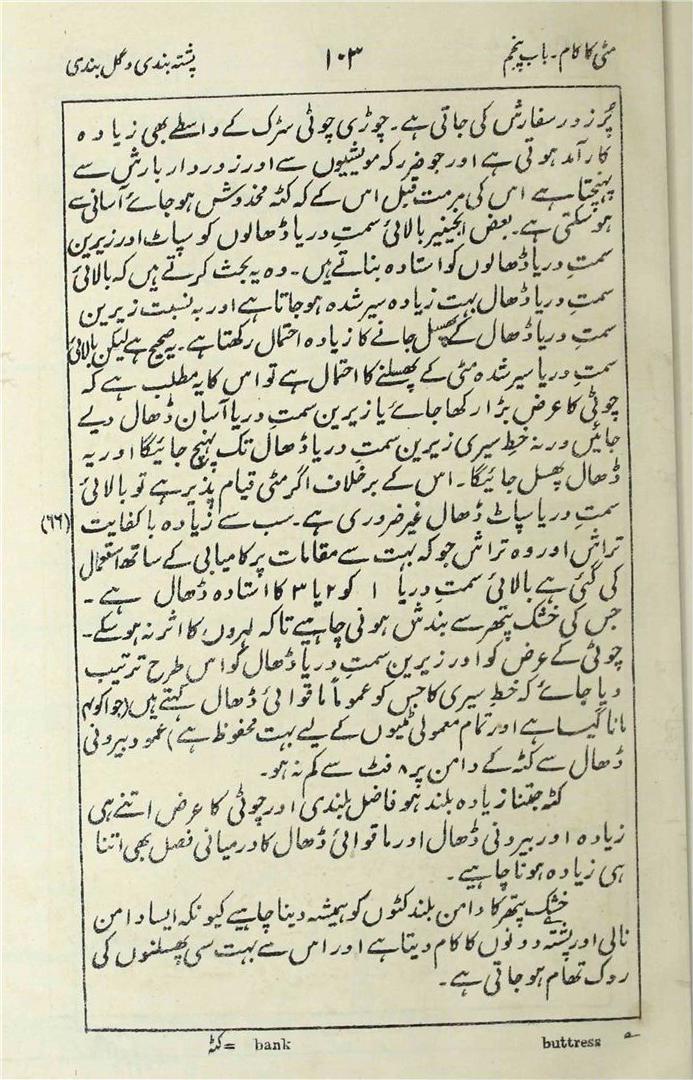 مٹی کا کام۔ باب پنجم ۱۰۳ پشتہ بندی و گل بندی
پُر زور سفارش کی جاتی ہے۔ چوڑی چوٹی سڑک کے واسطے بھی زیادہ
کارآمد ہوتی ہے اور جو ضرر کہ مویشیوں سے اور زور دار بارش سے
پہنچتا ہے اس کی مرمت قبل اس کے کہ کٹہ مخدوش ہو جائے آسانی سے
ہو سکتی ہے۔ بعض انجینیر بالائی سمتِ دریا ڈھالوں کو سپاٹ اور زیرین
سمتِ دریا ڈھالوں کو استادہ بناتے ہیں۔ وہ یہ بحث کرتے ہیں کہ بالائی
سمتِ دریا ڈھال بہت زیادہ سیر شدہ ہو جاتا ہے اور بہ نسبت زیرین
سمتِ دریا ڈھال کے پھسل جانے کا زیادہ احتمال رکھتا ہے۔ یہ صحیح ہے لیکن بالائی
سمتِ دریا سیر شدہ مٹی کے پھسلنے کا احتمال ہے تو اس کا یہ مطلب ہے کہ
چوٹی کا عرض بڑا رکھا جائے یا زیرین سمتِ دریا آسان ڈھال دیے
جائیں ورنہ خطِ سیری زیرین سمتِ دریا ڈھال تک پہنچ جائیگا اور یہ
ڈھال پھسل جائیگا۔ اس کے برخلاف اگر مٹی قیام پذیر ہے تو بالائی
سمتِ دریا سپاٹ ڈھال غیر ضروری ہے۔ سب سے زیادہ باکفایت (۶۶)
تراش اور وہ تراش جو کہ بہت سے مقامات پر کامیابی کے ساتھ استعمال
کی گئی ہے بالائی سمتِ دریا ۱ کو ۲ یا ۳ کا استادہ ڈھال ہے۔
جس کی خشک پتھر سے بندش ہونی چاہیے تاکہ لہروں کا اثر نہ ہو سکے۔
چوٹی کے عرض کو اور زیرین سمتِ دریا ڈھال کو اس طرح ترتیب
دیا جائے کہ خطِ سیری کا جس کو عموماً ماقوائی ڈھال کہتے ہیں (جو ا کو ۴
مانا گیا ہے اور تمام معمولی مٹیوں کے لیے بہت محفوظ ہے) عمود بیرونی
ڈھال سے کٹہ کے دامن پر ۸ فٹ سے کم نہ ہو۔
کٹہ جتنا زیادہ بلند ہو فاضل بلندی اور چوٹی کا عرض اتنے ہی
زیادہ اور بیرونی ڈھال اور ماقوائی ڈھال کا درمیانی فصل بھی اتنا
ہی زیادہ ہونا چاہیے۔
خشک پتھر کا دامن بلند کٹوں کو ہمیشہ دینا چاہیے کیونکہ ایسا دامن
نالی اور پشتہ دونوں کا کام دیتا ہے اور اس سے بہت سی پھسلنوں کی
روک تھام ہو جاتی ہے۔
کٹہ = bank buttress